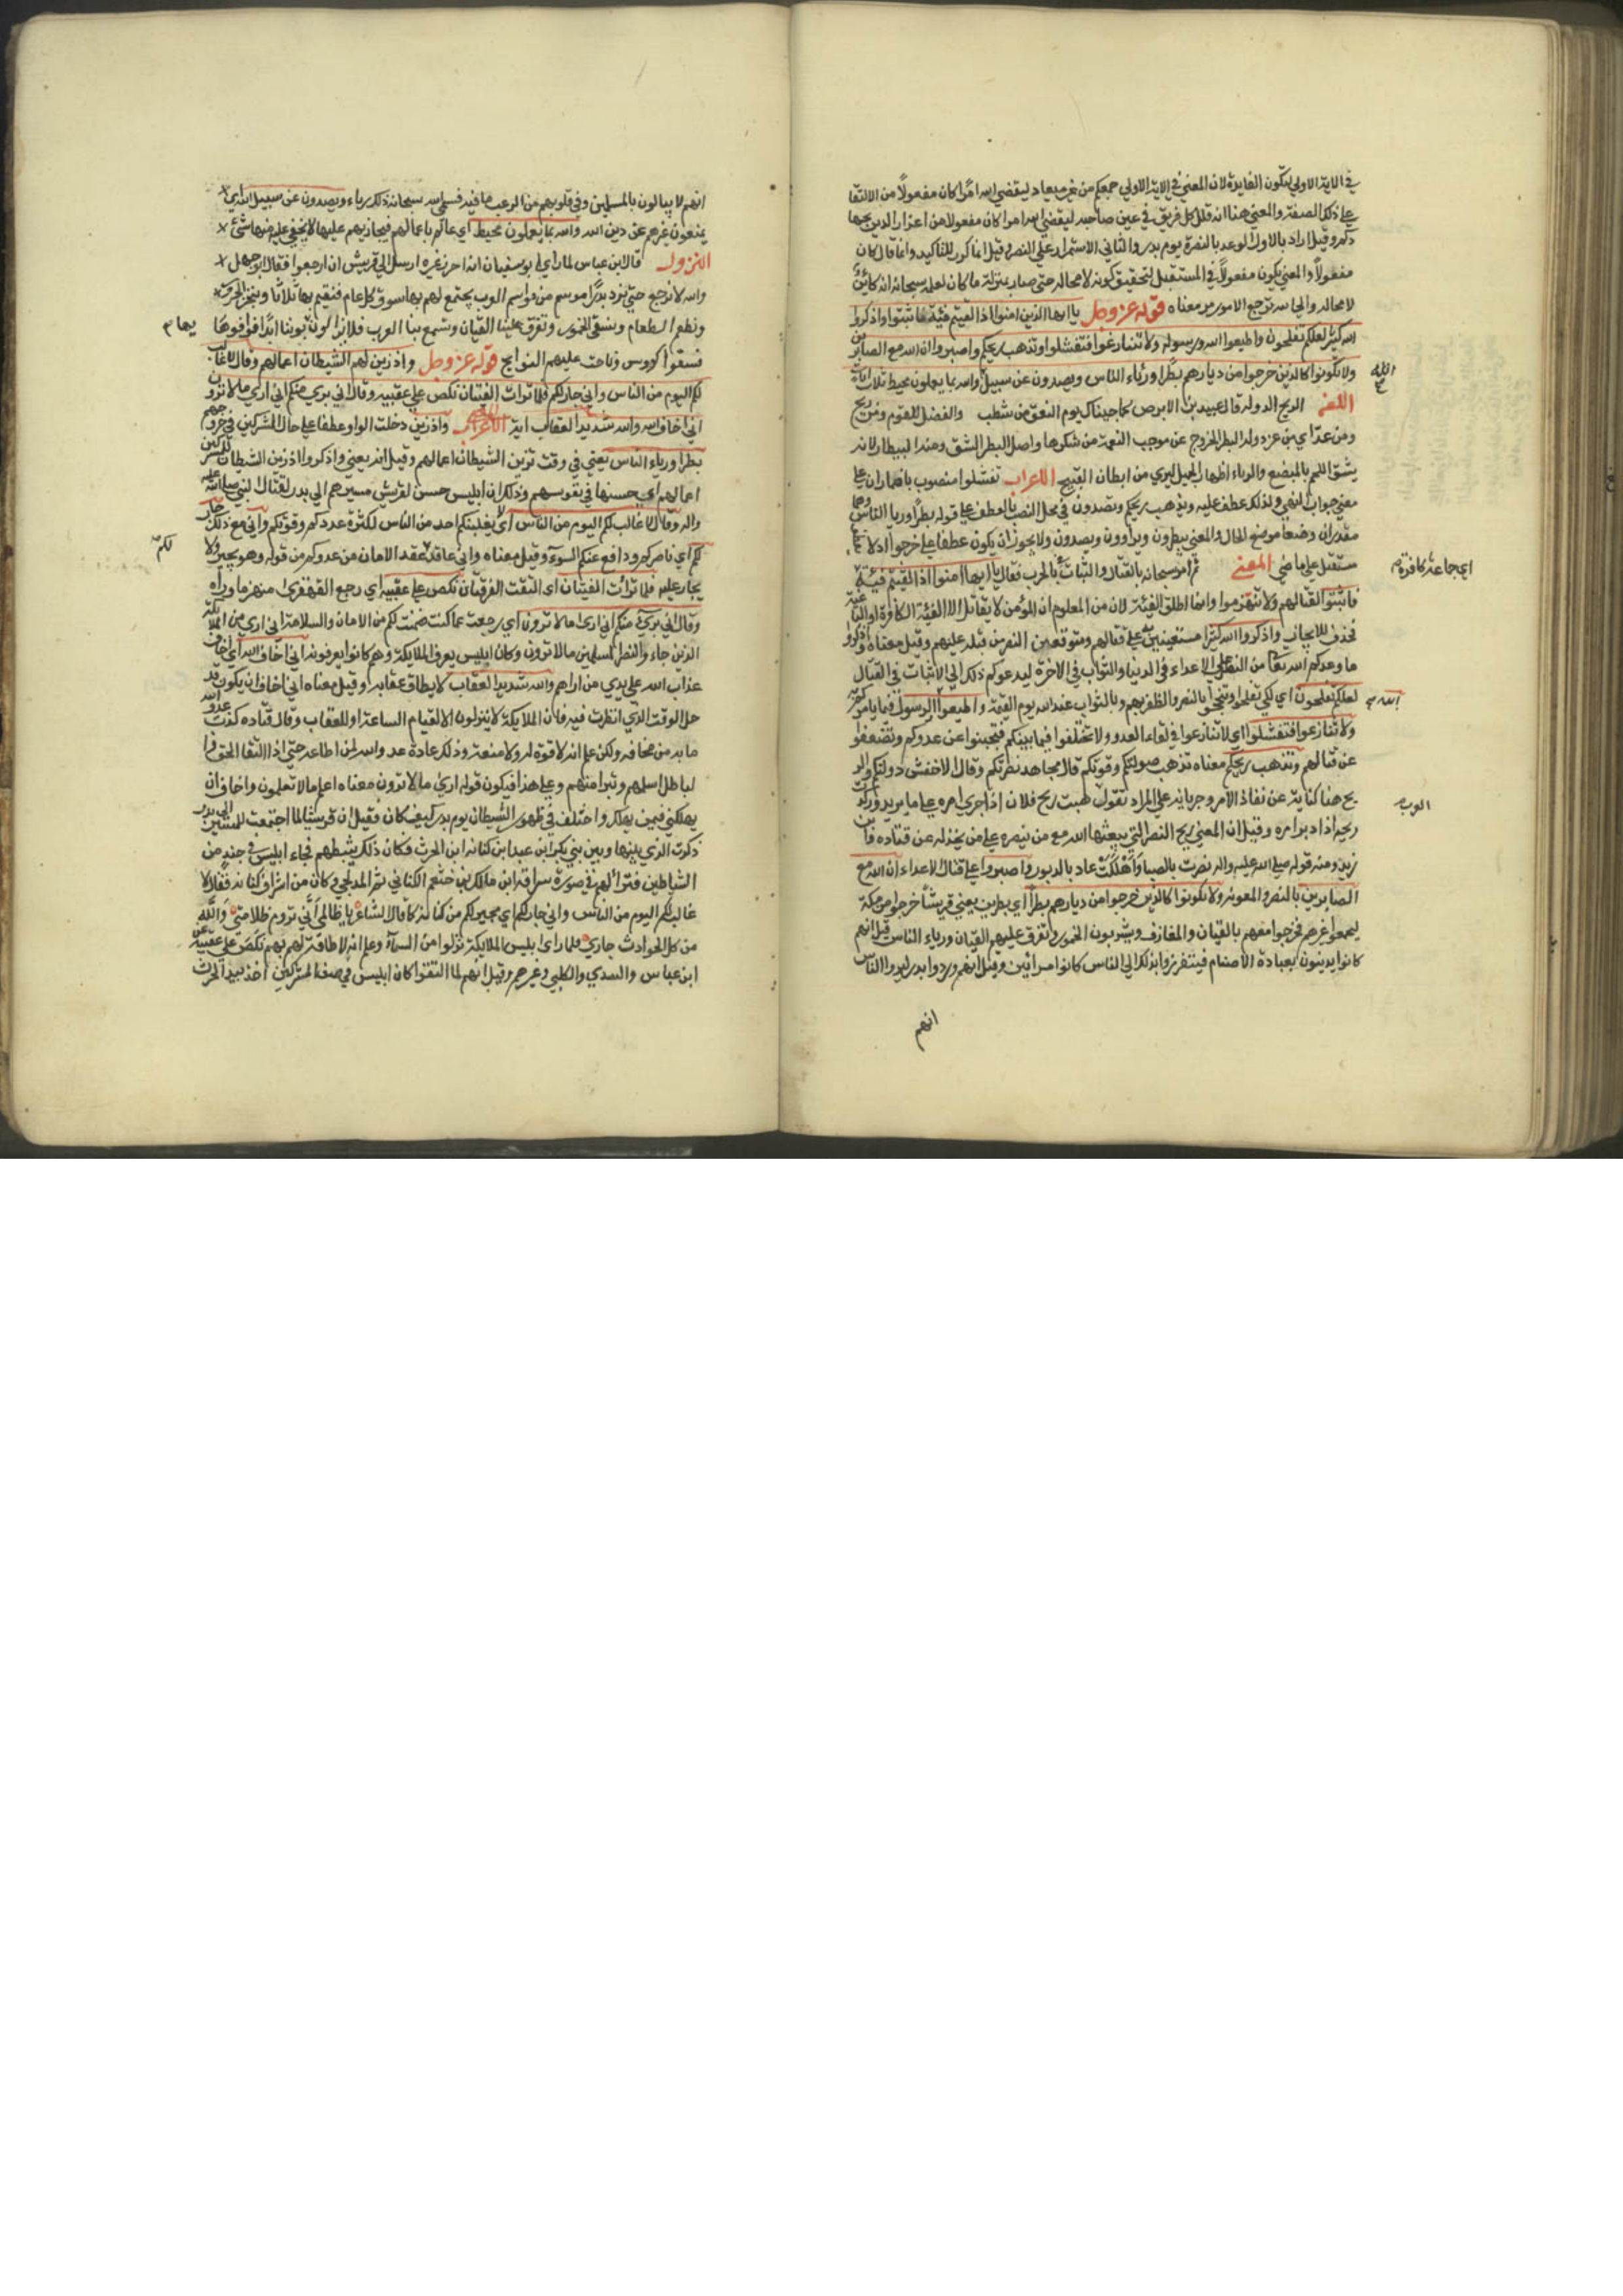 في الاية الاولي لتكون الفايدة لان المعني في الاية الاولي جمعكم من غير ميعاد ليقضي الله امرًا كان مفعولًا من الالتقا
علي ذلك الصفة والمعني هنا انه قلل كل فريق في عين صاحبه ليقضي الله امرا كان مفعولا من اعزاز الدين بجهادكم
وقيل اراد بالاول الوعد بالنصرة يوم بدر والثاني الاستمرار علي النصر وقيل انما كرر للتاكيد وانما قال كان
مفعولًا والمعني يكون مفعولًا في المستقبل لتحقيق كونه لا محالة حتي صار بمنزلة ما كان لعلمه سبحانه انه كاين
لا محالة والي الله ترجع الامور مر معناه قوله عز وجل يا ايها الذين امنوا اذا لقيتم فئة فاثبتوا واذكروا
الله كثيرًا لعلكم تفلحون واطيعوا الله ورسوله ولا تنازعوا فتفشلوا وتذهب ريحكم واصبروا ان الله مع الصابرين
ولا تكونوا كالذين خرجوا من ديارهم بطرًا ورئاء الناس ويصدون عن سبيل والله بما يعملون محيط ثلاث ايات
الله
اللغة الريح الدولة قال عبيد بن الابرص كما حميناك يوم النعف من شطب والفضل للقوم من ريح
ومن عدد اي من عز دولة البطر الخروج عن موجب النعمة من شكرها واصل البطر الشق ومنه البيطار لانه
يشق اللحم بالمبضع والرياء اظهار الجميل ليري من ابطان القبيح الاعراب تفشلوا منصوب باضمار ان علي
معني جواب النهي ولذلك عطف عليه وتذهب ريحكم ويصدون في محل النصب بالعطف علي قوله بطرًا وريا الناس وهما
مصدران وضعا موضع الحال والمعني يبطرون ويراوون ويصدون ولا يجوز ان يكون عطفا علي خرجوا اذ لا
مستقبل علي ماضي المعني ثم امر سبحانه بالقتال والثبات في الحرب فقال يا ايها امنوا اذا لقيتم فئة
اي جماعة كافرة
فاثبتوا لقتالهم ولا تنهزموا وانما اطلق الفئة لان من المعلوم ان المؤمن لا يقاتل الا الفئة الكافرة او الباغية
فحذف للايجاز واذكروا الله كثيرًا مستعينين به علي قتالهم ومتوقعين النصر من قبله عليهم وقيل معناه واذكروا
ما وعدكم الله تعا من النصر علي الاعداء في الدنيا والثواب في الاخرة ليدعوكم ذلك الي الاثبات في القتال
لعلكم تفلحون اي لكي تفلحوا وتنجحوا بالنصر والظفر بهم وبالثواب عند الله يوم القيمة واطيعوا الرسول فيما يامركم به
الله
ولا تنازعوا فتفشلوا اي لا تنازعوا في لقاء العدو ولا تختلفوا فيما بينكم فتجبنوا عن عدوكم وتضعفوا
عن قتالهم وتذهب ريحكم معناه تذهب صولتكم وقوتكم قال مجاهد نصرتكم وقال الاخفش دولتكم والر
يح هنا كناية عن نفاذ الامر وجريانه علي المراد تقول هبت ريح فلان اذا جري امره علي ما يريد وركدت
العرب
ريحه اذا ادبر امره وقيل ان المعني ريح النصر التي يبعثها الله مع من ينصره علي من يخذله عن قتاده وابن
زيد ومنه قوله صلي الله عليه واله نصرت بالصبا واهلكت عاد بالدبور واصبروا علي قتال الاعداء ان الله مع
الصابرين بالنصر والمعونة ولا تكونوا كالذين خرجوا من ديارهم بطرًا اي بطرين يعني قريشًا خرجوا من مكة
ليحموا عيرهم فخرجوا معهم بالقيان والمعازف ويشربون الخمور وتعزف عليهم القيان ورياء الناس قيل انهم
كانوا يدينون بعبادة الاصنام فيتفرزوا بذلك الي الناس كانوا مراتين وقيل انهم وردوا بدر ليروا الناس
انهم
انهم لا يبالون بالمسلمين وفي قلوبهم من الرعب ما فيه فسمي الله سبحانه ذلك رياء ويصدون عن سبيل الله اي
يمنعون غيرهم عن دين الله والله بما يعملون محيط اي عالم باعمالهم فيجازيهم عليها لا يخفي عليه منها شئ
النزول قال ابن عباس لما راي ابو سفيان انه احرز عيره ارسل الي قريش ان ارجعوا فقال ابو جهل
والله لا نرجع حتي نرد بدرًا موسم من مواسم العرب يجتمع لهم بها سوق كل عام فنقيم بها ثلاثًا وننحر الجزر
ونطعم الطعام ونسقي الخمور وتعزف علينا القيان وتسمع بنا العرب فلا يزالون يهابوننا ابدًا فوافوها
فسقوا كووس وناحت عليهم النوايح قوله عز وجل واذ زين لهم الشيطان اعمالهم وقال لا غالب
لكم اليوم من الناس واني جار لكم فلما تراءت الفئتان نكص علي عقبيه وقال اني بري منكم اني اري ما لا ترون
اني اخاف الله والله شديد العقاب اية الاعراب واذ زين دخلت الواو عطفا علي حال المشركين في خروجهم
بطرا ورياء الناس يعني في وقت تزين الشيطان اعمالهم وقيل انه يعني واذكروا اذ زين الشيطان للمشركين
اعمالهم اي حسنها في نفوسهم وذلك ان ابليس حسن لقريش مسيرهم الي بدر لقتال النبي صلي الله عليه
واله وقال لا غالب لكم اليوم من الناس اي لا يغلبنكم احد من الناس لكثرة عددكم وقوتكم واني مع ذلك جار
لكم
لكم اي ناصركم ودافع عنكم السوء وقيل معناه واني عاقد عقد الامان من عدوكم من قوله وهو يجير ولا
يجار عليه فلما تراءت الفئتان اي التقت الفرقتان نكص علي عقبيه اي رجع القهقري منهزما وراءه
وقال اني بريء منكم اني اري ما لا ترون اي رجعت عما كنت ضمنت لكم من الامان والسلامة اني اري من الملائكة
الذين جاءوا لنصر المسلمين ما لا ترون وكان ابليس يعرف الملايكة وهم كانوا يعرفونه اني اخاف الله اي اخاف
عذاب الله علي يدي من اراهم والله شديد العقاب لا يطاق عقابه وقيل معناه اني اخاف ان يكون قد
حل الوقت الذي انظرت فيه فان الملايكة لا ينزلون الا لقيام الساعة او للعقاب وقال قتاده كذب عدو الله
ما به من مخافه ولكن علم انه لا قوة له ولا منعة وذلك عادة عدو الله لمن اطاعه حتي اذا التقا الحق وا
لباطل اسلمهم وتبرا منهم وعلي هذا فيكون قوله اري ما لا ترون معناه اعلم ما لا تعلمون واخاف ان
يهلكني فيمن يهلك واختلف في ظهور الشيطان يوم بدر كيف كان فقيل ان قريشًا لما اجتمعت للمسير الي بدر
ذكرت الذي بينها وبين بني بكر ابن عبد ابن كنانه ابن الحرث فكان ذلك يثبطهم فجاء ابليس في جند من
الشياطين فتبدا لهم في صورة سراقة ابن مالك بن جعشم الكناني ثم المدلجي وكان من اشراف كنانه فقال لا
غالب لكم اليوم من الناس واني جار لكم اي مجيركم من كنانة كما قال الشاعر يا ظالمي اَنّي تروم ظلامتي وَاللّه
من كل الحوادث جاري فلما راي ابليس الملايكة نزلوا من السماء وعلم انه لا طاقة لهم بهم نكص علي عقبيه عن
ابن عباس والسدي والكلبي وغيرهم وقيل انهم لما التقوا كان ابليس في صف المشركين اخذ بيد الحرث